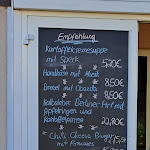 Empfehlung
Kartoffelcremesuppe
mit Speck
5,20€
Handkäse mit Musik
8,50€
Brezel mit Obazda
9,50€
Kalbsleber Berliner Art mit
Apfelringen und
Kartoffelpüree
22,80€
Chili Cheese Burger
mit Pommes